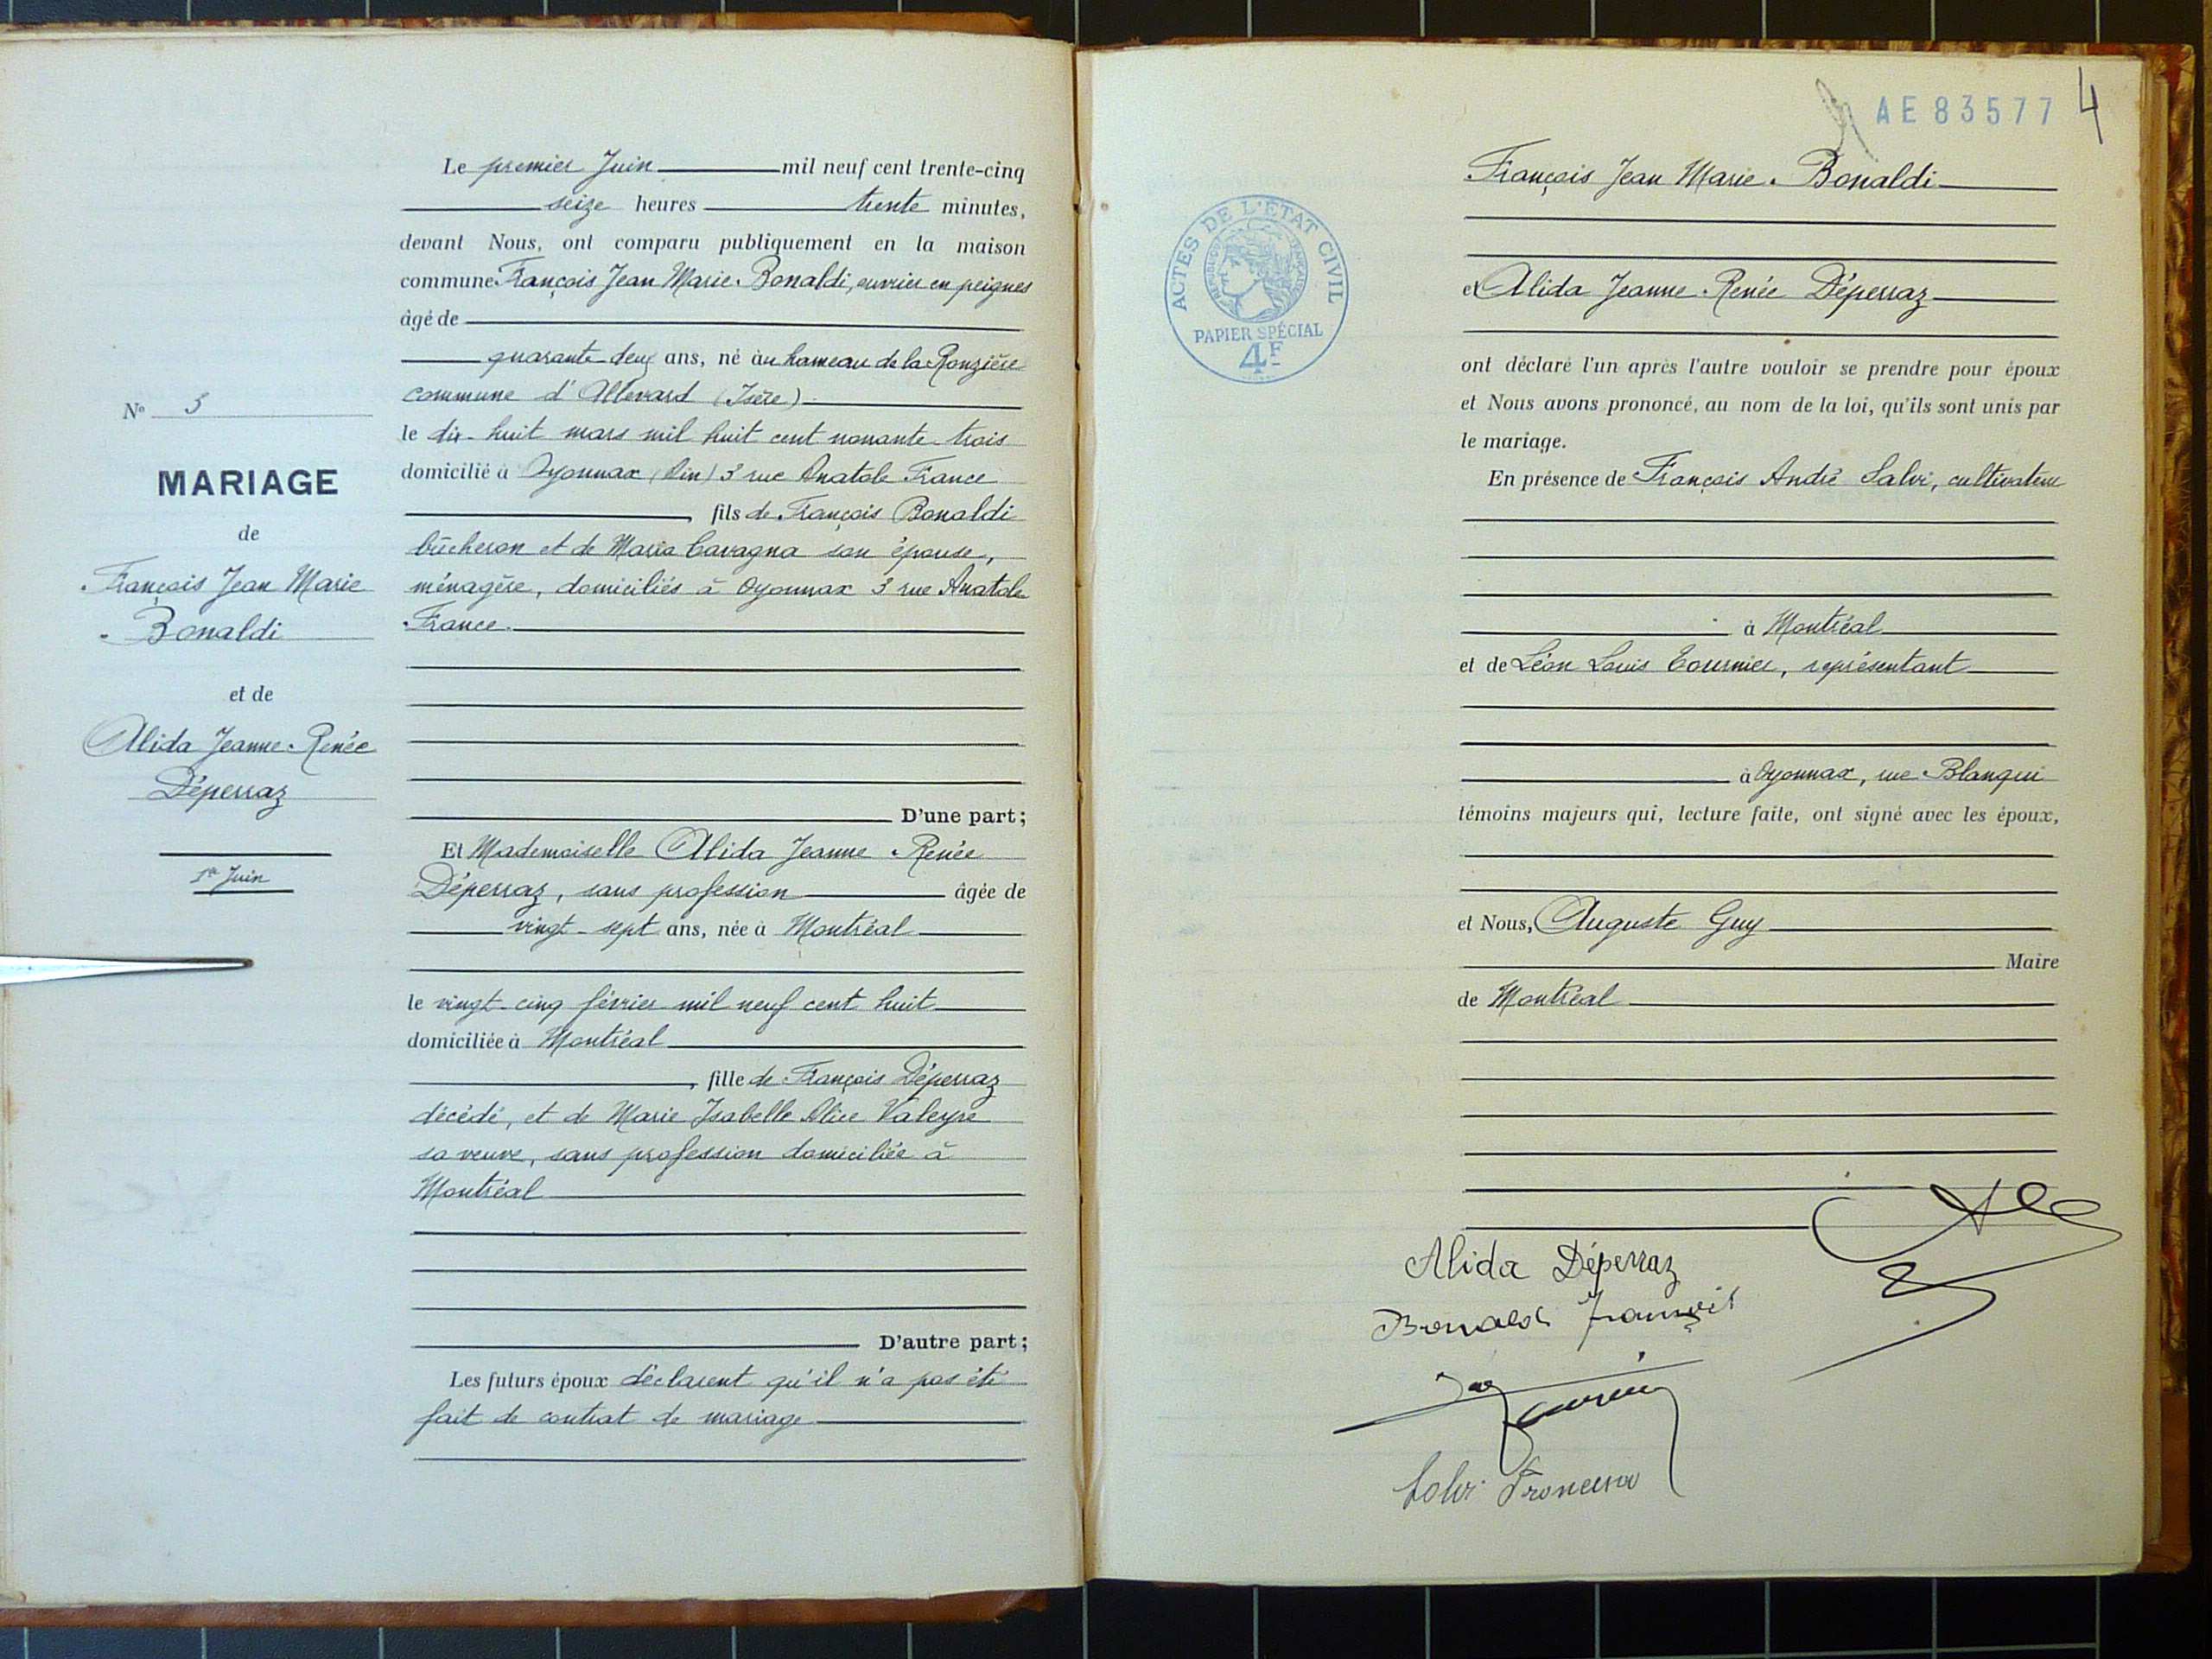 N° 3
MARIAGE
de
François Jean Marie
Bonaldi
et de
Alida Jeanne Renée
Déperraz
1er Juin
Le premier Juin mil neuf cent trente-cinq
seize heures trente minutes,
devant Nous, ont comparu publiquement en la maison
commune François Jean Marie Bonaldi, ouvrier en peignes
âgé de
quarante-deux ans, né à au hameau de la Ronzière
commune d'Allevard (Isère)
le dix-huit mars mil huit cent nonante-trois
domicilié à Oyonnax (Ain) 3 rue Anatole France
, fils de François Bonaldi
bûcheron et de Maria Cavagna son épouse,
ménagère, domiciliés à Oyonnax 3 rue Anatole
France.
D'une part;
Et Mademoiselle Alida Jeanne Renée
Déperraz, sans profession âgée de
vingt-sept ans, née à Montréal
le vingt-cinq février mil neuf cent huit
domiciliée à Montréal
, fille de François Déperraz
décédé, et de Marie Isabelle Alice Valeyre
sa veuve, sans profession domiciliée à
Montréal
D'autre part;
Les futurs époux déclarent qu'il n'a pas été
fait de contrat de mariage
AE 83577 4
ACTES DE L'ETAT CIVIL
REPUBLIQUE FRANÇAISE
PAPIER SPÉCIAL
4F
François Jean Marie Bonaldi
et Alida Jeanne Renée Déperraz
ont déclaré l'un après l'autre vouloir se prendre pour époux
et Nous avons prononcé, au nom de la loi, qu'ils sont unis par
le mariage.
En présence de François André Salvi, cultivateur
à Montréal
et de Léon Louis Tournier, représentant
à Oyonnax, rue Blanqui
témoins majeurs qui, lecture faite, ont signé avec les époux,
et Nous, Auguste Guy
Maire
de Montréal
Alida Déperraz
Bonaldi François
Salvi Francesco